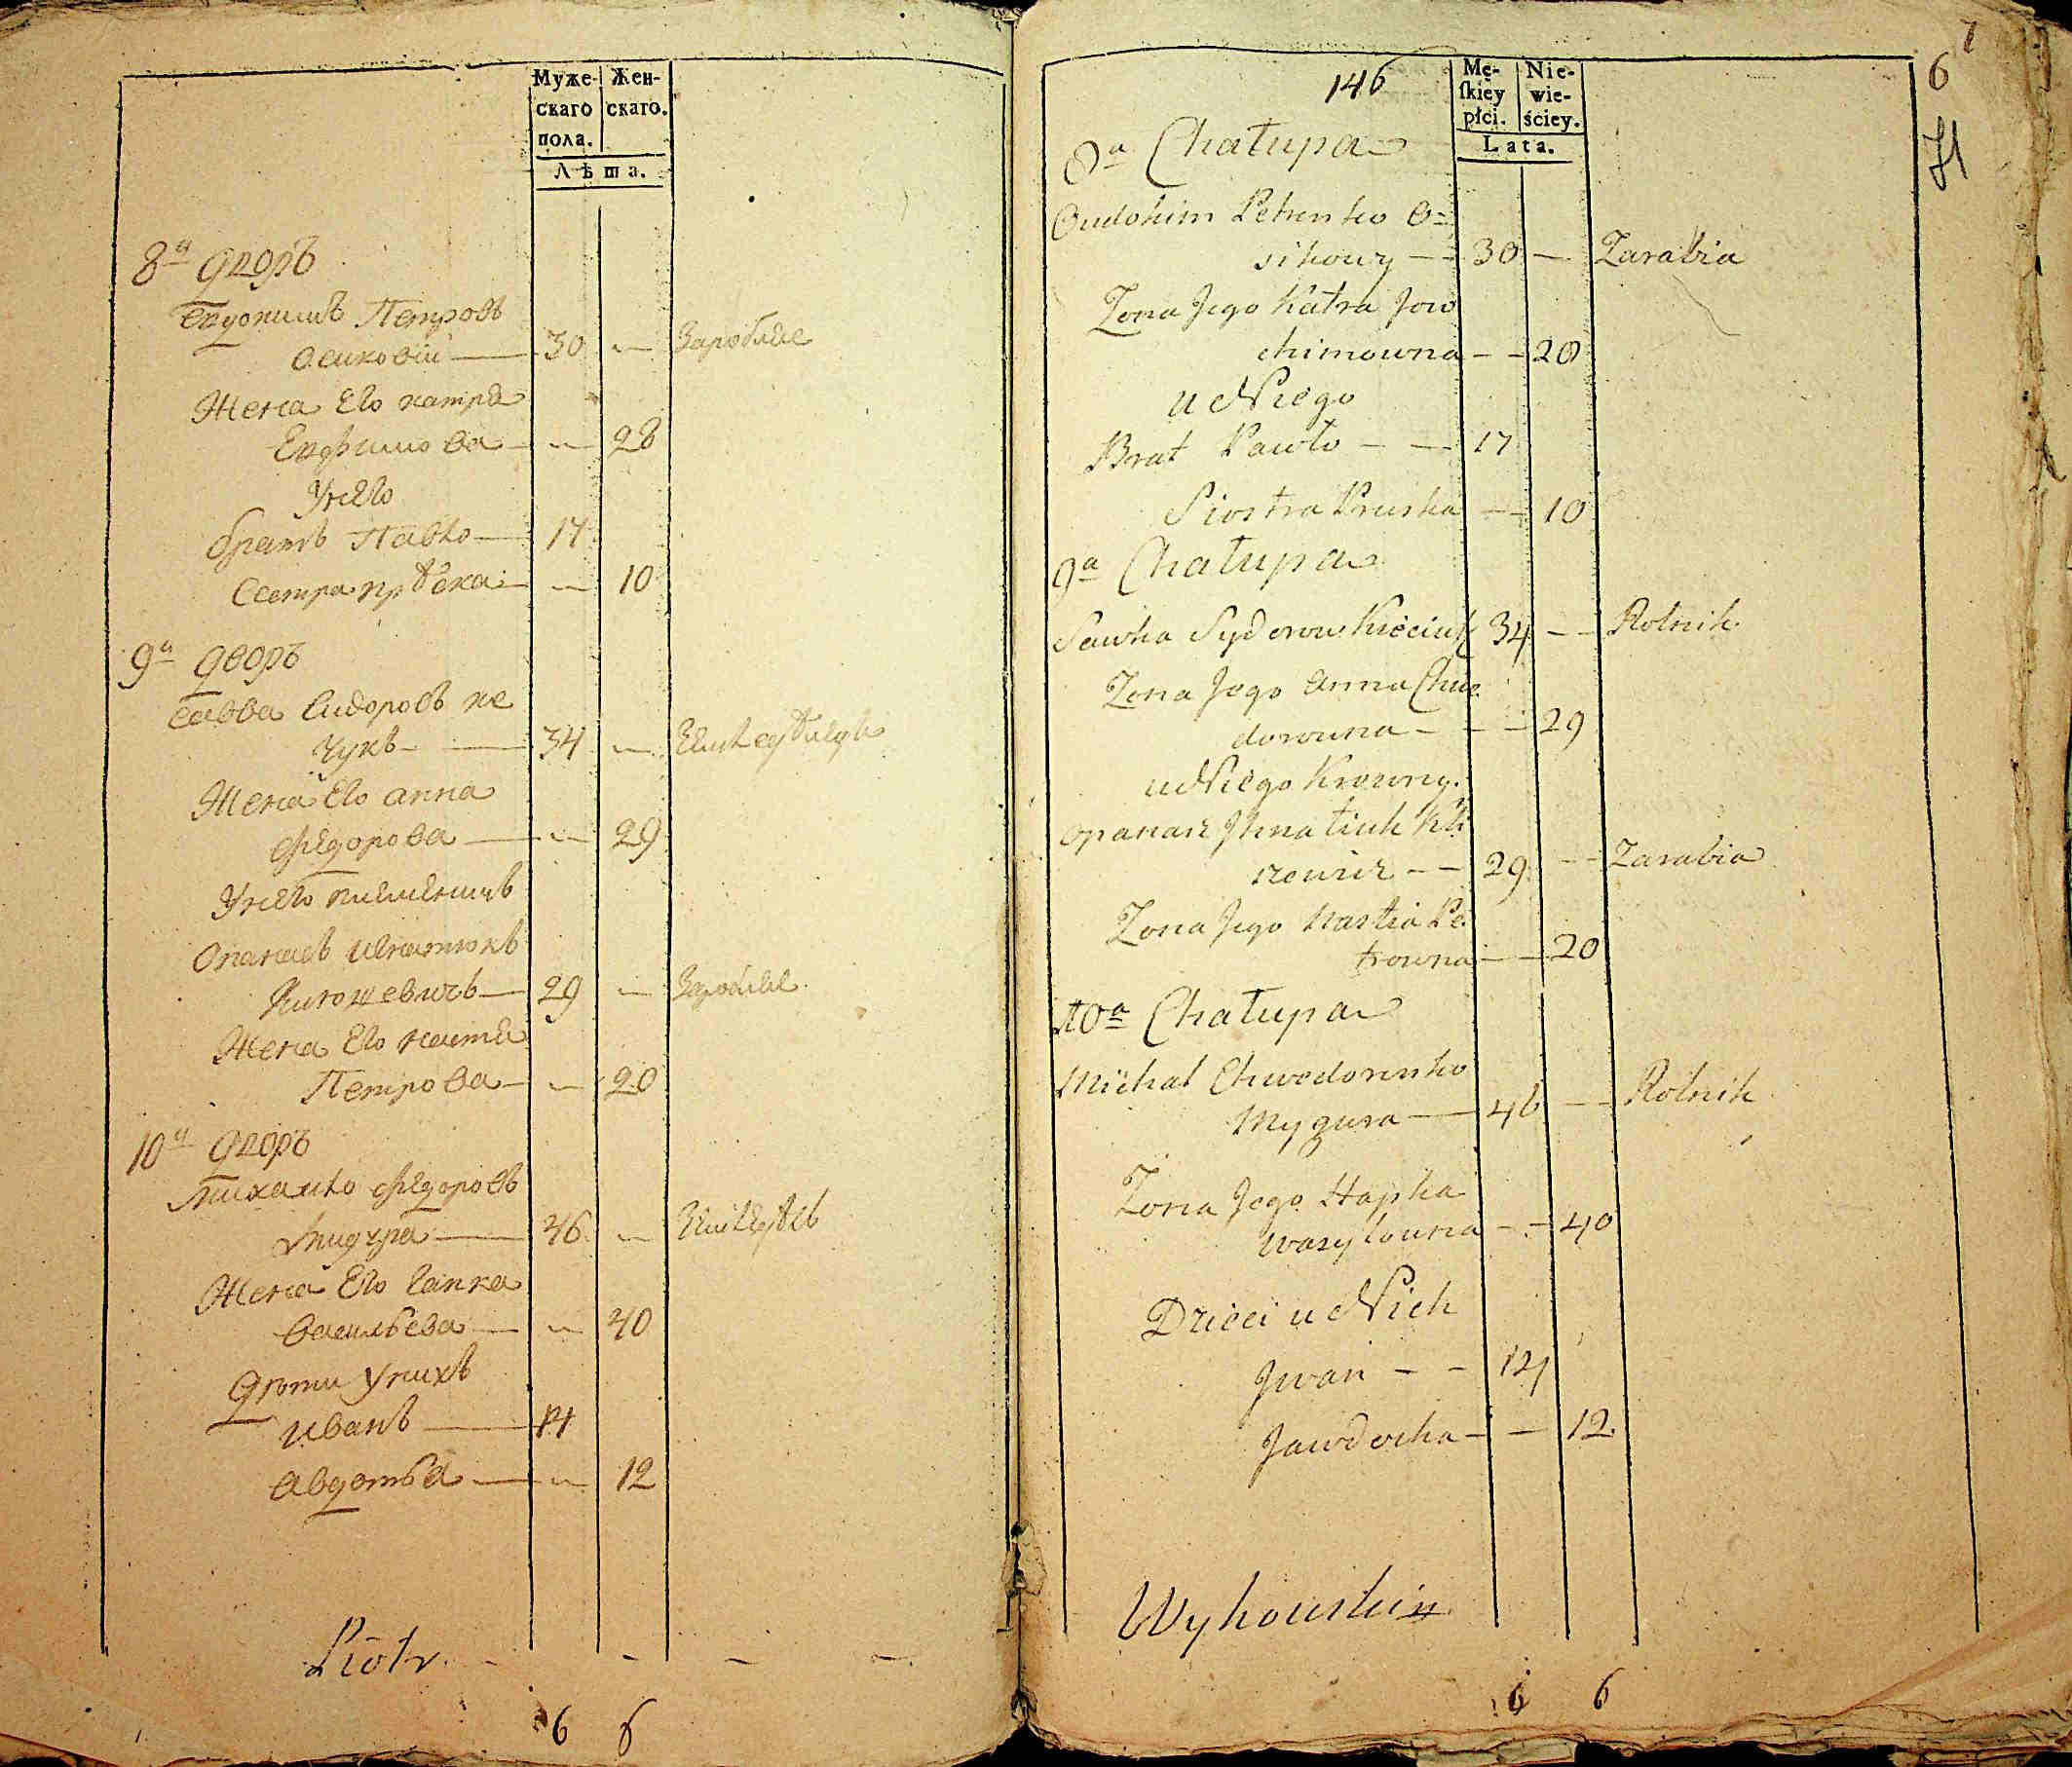 Муже-
скаго
пола.
Жен-
скаго.
Лѣта.
8й дворъ
Евдокимъ Петровъ
Осиковій — 30 —
Жена Его катря
Евфимова — — 28
У него
братъ Павло — 17
Сестра — 10
9й дворъ
Савва Сидоровъ ке
чукъ — 34 —
Жена Его анна
Федорова — — 29
У него племенникъ
Опанасъ игнатюкъ
29 —
Жена Его настя
Петрова — — 20
10й дворъ
михайло Федоровъ
мигура — 46 —
Жена Его Гапка
Васильева — — 40
Дѣти у нихъ
иванъ — 14
авдотья — — 12
Piotr. - - - -
6 6
7
6
146
Mę-
ſkiey
płci.
Nie-
wie-
ściey.
Lata.
8a Chałupa
Oudokim Petrenko O=
sikowy — 30 — Zarabia
Zona Jego Katra Jow
chimowna — — 28
u Niego
Brat Pawło — — 17
Siostra Pruska — — 10
9a Chałupa
Sawka Sydorow Kieciuk 34 — — Rolnik
Zona Jego Anna Chwe
dorowna — — — 29
u Niego Krewny.
Opanas Jhnatiuk
29 — — Zarabia
Zona Jego Nastia Pe
trowna — — 20
10a Chałupa
Michał Chwedorenko
Mygura — 46 — — Rolnik
Zona Jego Hapka
Wasylowna — — 40
Dzieci u Nich
Jwan — — 14
Jawdocha — — 12.
Wyhowskiy
6 6